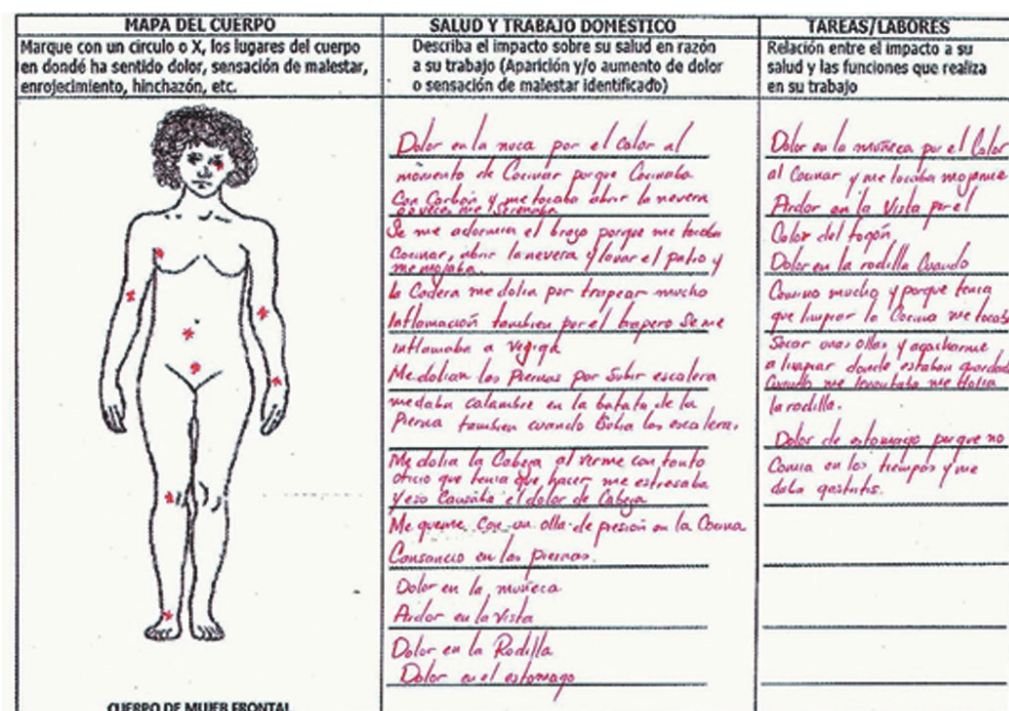 MAPA DEL CUERPO
Marque con un circulo o X, los lugares del cuerpo
en dondé ha sentido dolor, sensación de malestar,
enrojecimiento, hinchazón, etc.
CUERPO DE MUJER FRONTAL
SALUD Y TRABAJO DOMÉSTICO
Describa el impacto sobre su salud en razón
a su trabajo (Aparición y/o aumento de dolor
o sensación de malestar identificado)
Dolor en la nuca por el Calor al
momento de Cocinar porque Cocinaba
Con Carbón y me tocaba abrir la nevera
a veces me Serenaba
Se me adormecia el brazo porque me tocaba
Cocinar, abrir la nevera y lavar el patio y
me mojaba.
la Cadera me dolia por trapear mucho
Inflamación tambien por el trapero Se me
inflamaba a vejiga
Me dolian las Piernas por Subir escalera
me daba calambre en la batata de la
Pierna tambien cuando Subia las escalera.
Me dolia la Cabeza al verme con tanto
oficio que tenia que hacer me estresaba
y eso Causaba el dolor de Cabeza
Me queme con un olla de presión en la Cocina
Cansancio en las piernas.
Dolor en la muñeca
Ardor en la vista
Dolor en la Rodilla
Dolor en el estomago
TAREAS/LABORES
Relación entre el impacto a su
salud y las funciones que realiza
en su trabajo
Dolor en la muñeca por el Calor
al Cocinar y me tocaba mojarme
Ardor en la Vista por el
Calor del fogón
Dolor en la rodilla Cuando
Camino mucho y porque tenia
que limpiar la Cocina me tocaba
Sacar unas ollas y agacharme
a limpiar donde estaban guardada
Cuando me levantaba me dolia
la rodilla.
Dolor de estomago porque no
Comia en los tiempos y me
daba gastritis.